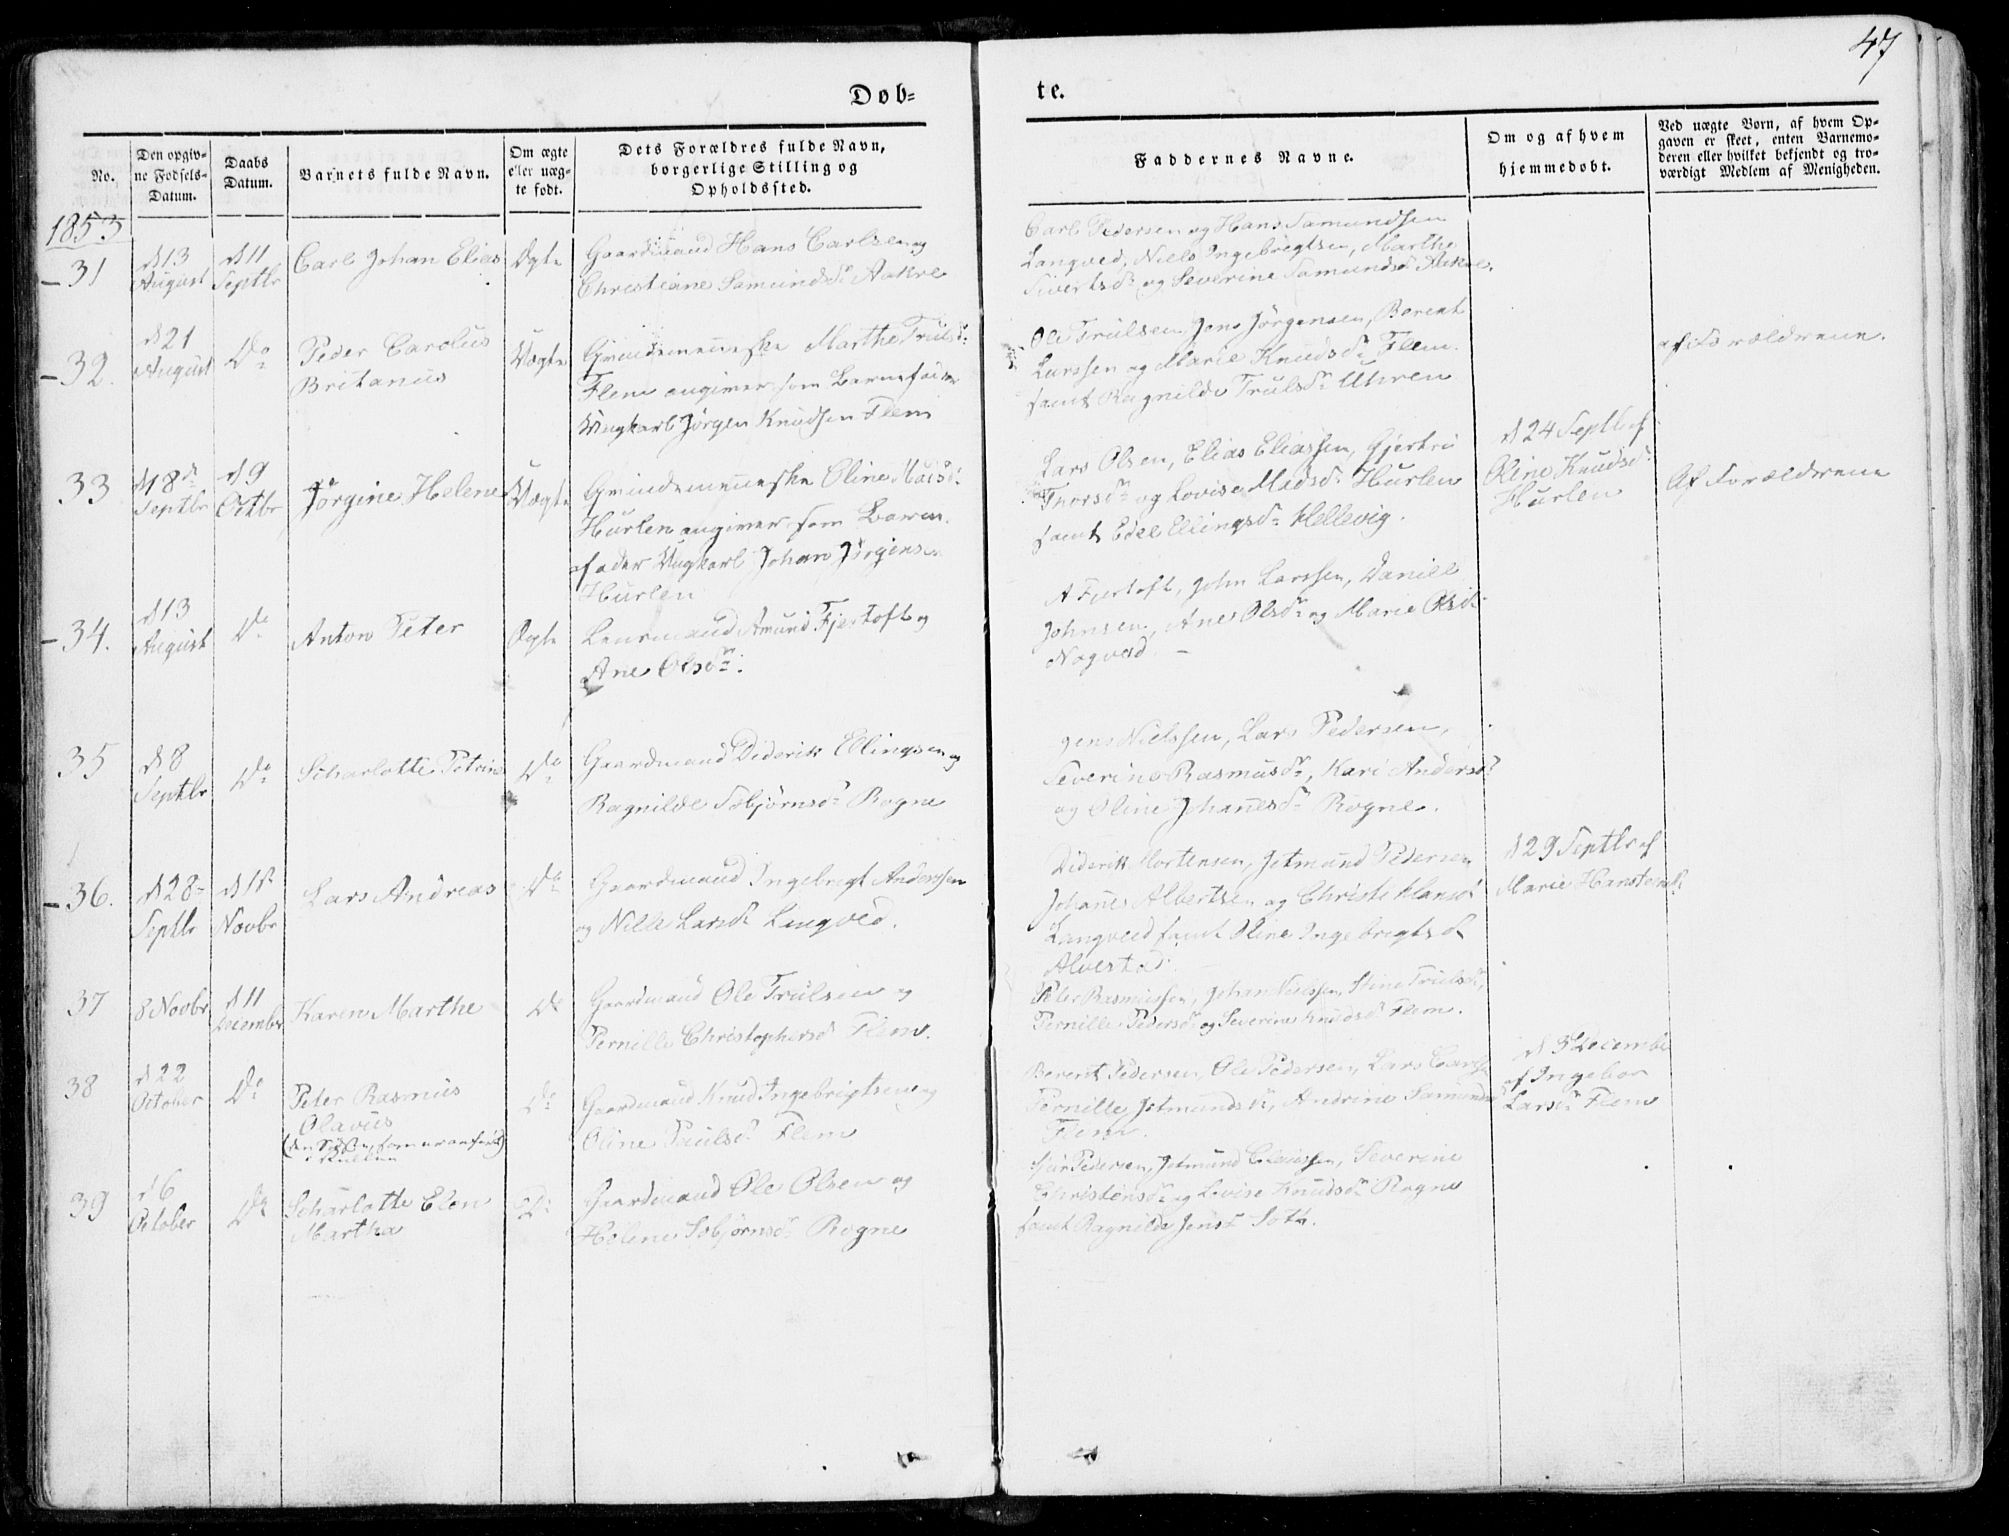 47
Døb=
te.
No.
Den opgiv-
ne Fødsels-
Datum.
Daabs
Datum.
Barnets fulde Navn.
Om ægte
eller uæg-
te født.
Dets Forældres fulde Navn,
borgerlige Stilling og
Opholdssted.
Faddernes Navne.
Om og af hvem
hjemmedøbt.
Ved uægte Børn, af hvem Op-
gaven er skeet, enten Barnemo-
deren eller hvilket bekjendt og tro-
værdigt Medlem af Menigheden.
1853
31
d 13
August
d 11
Septbr
Carl Johan Elias
Ægte
Gaardmand Hans Carlsen og
Christiane Samundsdr Aakre
Carl Pedersen og Hans Samundsen
Langved, Niels Ingebrigtsen, Marthe
Sivertsdr og Severine Samundsd Aakre.
32.
d 21
August
Do
Peder Carolus
Britanus
Uægte
Qvindemenneske Marthe Trulsd:
Flem angiver som Barnefader
Ungkarl Jørgen Knudsen Flem
Ole Trulsen, Jens Jørgensen, Berent
Larssen og Marie Knudsdr Flem
samt Ragnilde Trulsdr Uhren
af Forældrene.
33
d 18de
Septbr
d 9
Octbr
Jørgine Helene
Uægte
Qvindemenneske Oline Madsd:
Hurlen angiver som Barne-
fader Ungkarl Johan Jørgensen
Hurlen
Lars Olsen, Elias Eliassen, Gjertru
Thorsdr og Lovise Madsdr Hurlen
samt Edel Ellingsdr Hellevig.
d 24 Septb af
Oline Knudsd:
Hurlen
Af Forældrene
34.
d 13
August
Do
Anton Peter
Ægte
Lensmand Amund Fjertoft og
Ane Olsdr.
A Fjertoft, John Larssen, Daniel
Johnsen, Ane Olsdr og Marie Olsdr
Nogved. –
35
d 8
Septbr
Do
Scharlotte Petrine
Do
Gaardmand Diderik Ellingsen og
Ragnilde Sebjørnsdr Rogne
Jens Nielssen, Lars Pedersen,
Severine Rasmusdr, Kari Andersdr
og Oline Johanesdr Rogne.
36.
d 28
Septbr
d 1
Novbr
Lars Andreas
Do
Gaardmand Ingebrigt Anderssen
og Nille Larsdr Langved.
Diderik Mortensen, Jetmund Pedersen
Johanes Albertsen og Christi Hansdr
Langved samt Oline Ingebrigtsd
Alvestad.
d 29 Septbr af
Marie Hanstensdr
37
8 Novbr
d 11
December
Karen Marthe
Do
Gaardmand Ole Trulsen og
Pernille Christophersd Flem.
Peter Rasmussen, Johan Nielssen, Stine Trulsdr,
Pernille Pedersdr og Severine Knudsdr Flem.
38
d 22
October
Do
Peter Rasmus
Olavus
Do
Gaardmand Knud Ingebrigtsen og
Oline Paulsdr Flem
Berent Pedersen, Ole Pedersen, Lars
Pernille Jetmundsdr, Andrine Samundsdr
Flem.
d 3 December
af Ingebor
Larsdr Flem
39
d 6
October
Do
Scharlotte Elen
Martha
Do
Gaardmand Ole Olsen og
Helene Sebjørnsdr Rogne
Sjur Pedersen, Jetmund Claussen, Severine
Christensdr og Lovise Knudsdr Rogne
samt Ragnilde Jensdr